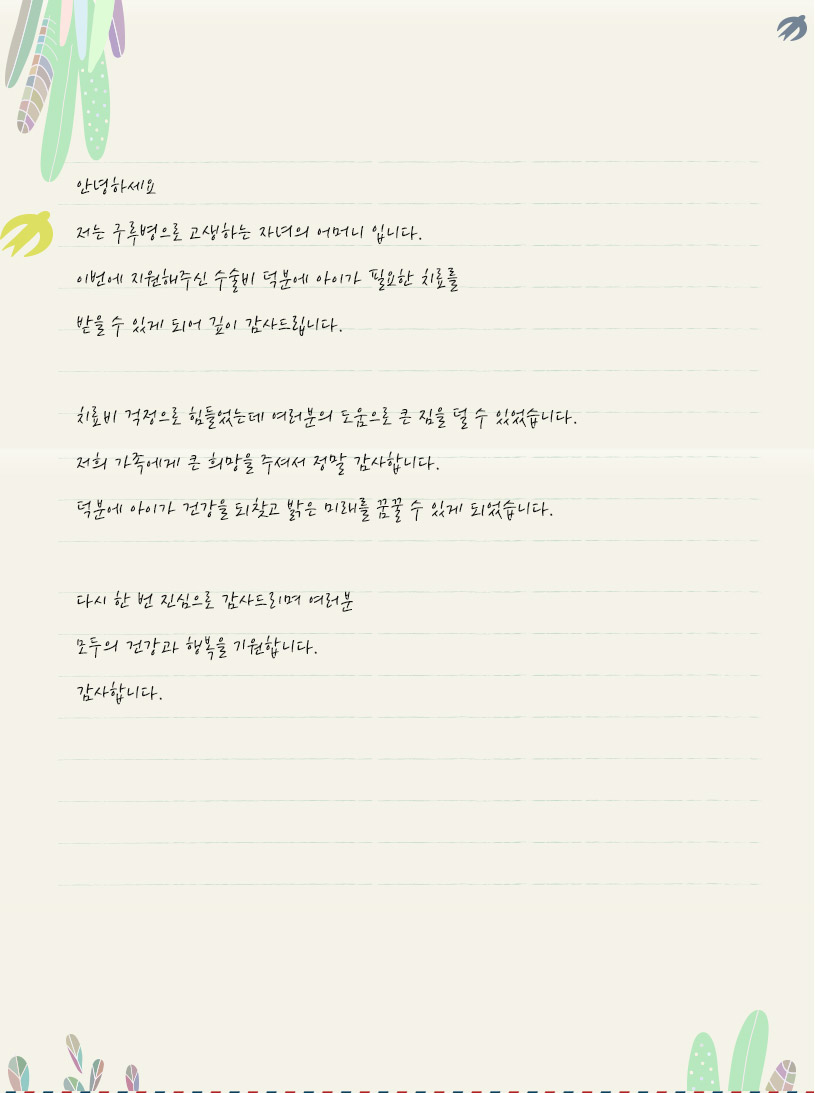 안녕하세요
저는 구루병으로 고생하는 자녀의 어머니 입니다.
이번에 지원해주신 수술비 덕분에 아이가 필요한 치료를
받을 수 있게 되어 깊이 감사드립니다.
치료비 걱정으로 힘들었는데 여러분의 도움으로 큰 짐을 덜 수 있었습니다.
저희 가족에게 큰 희망을 주셔서 정말 감사합니다.
덕분에 아이가 건강을 되찾고 밝은 미래를 꿈꿀 수 있게 되었습니다.
다시 한 번 진심으로 감사드리며 여러분
모두의 건강과 행복을 기원합니다.
감사합니다.